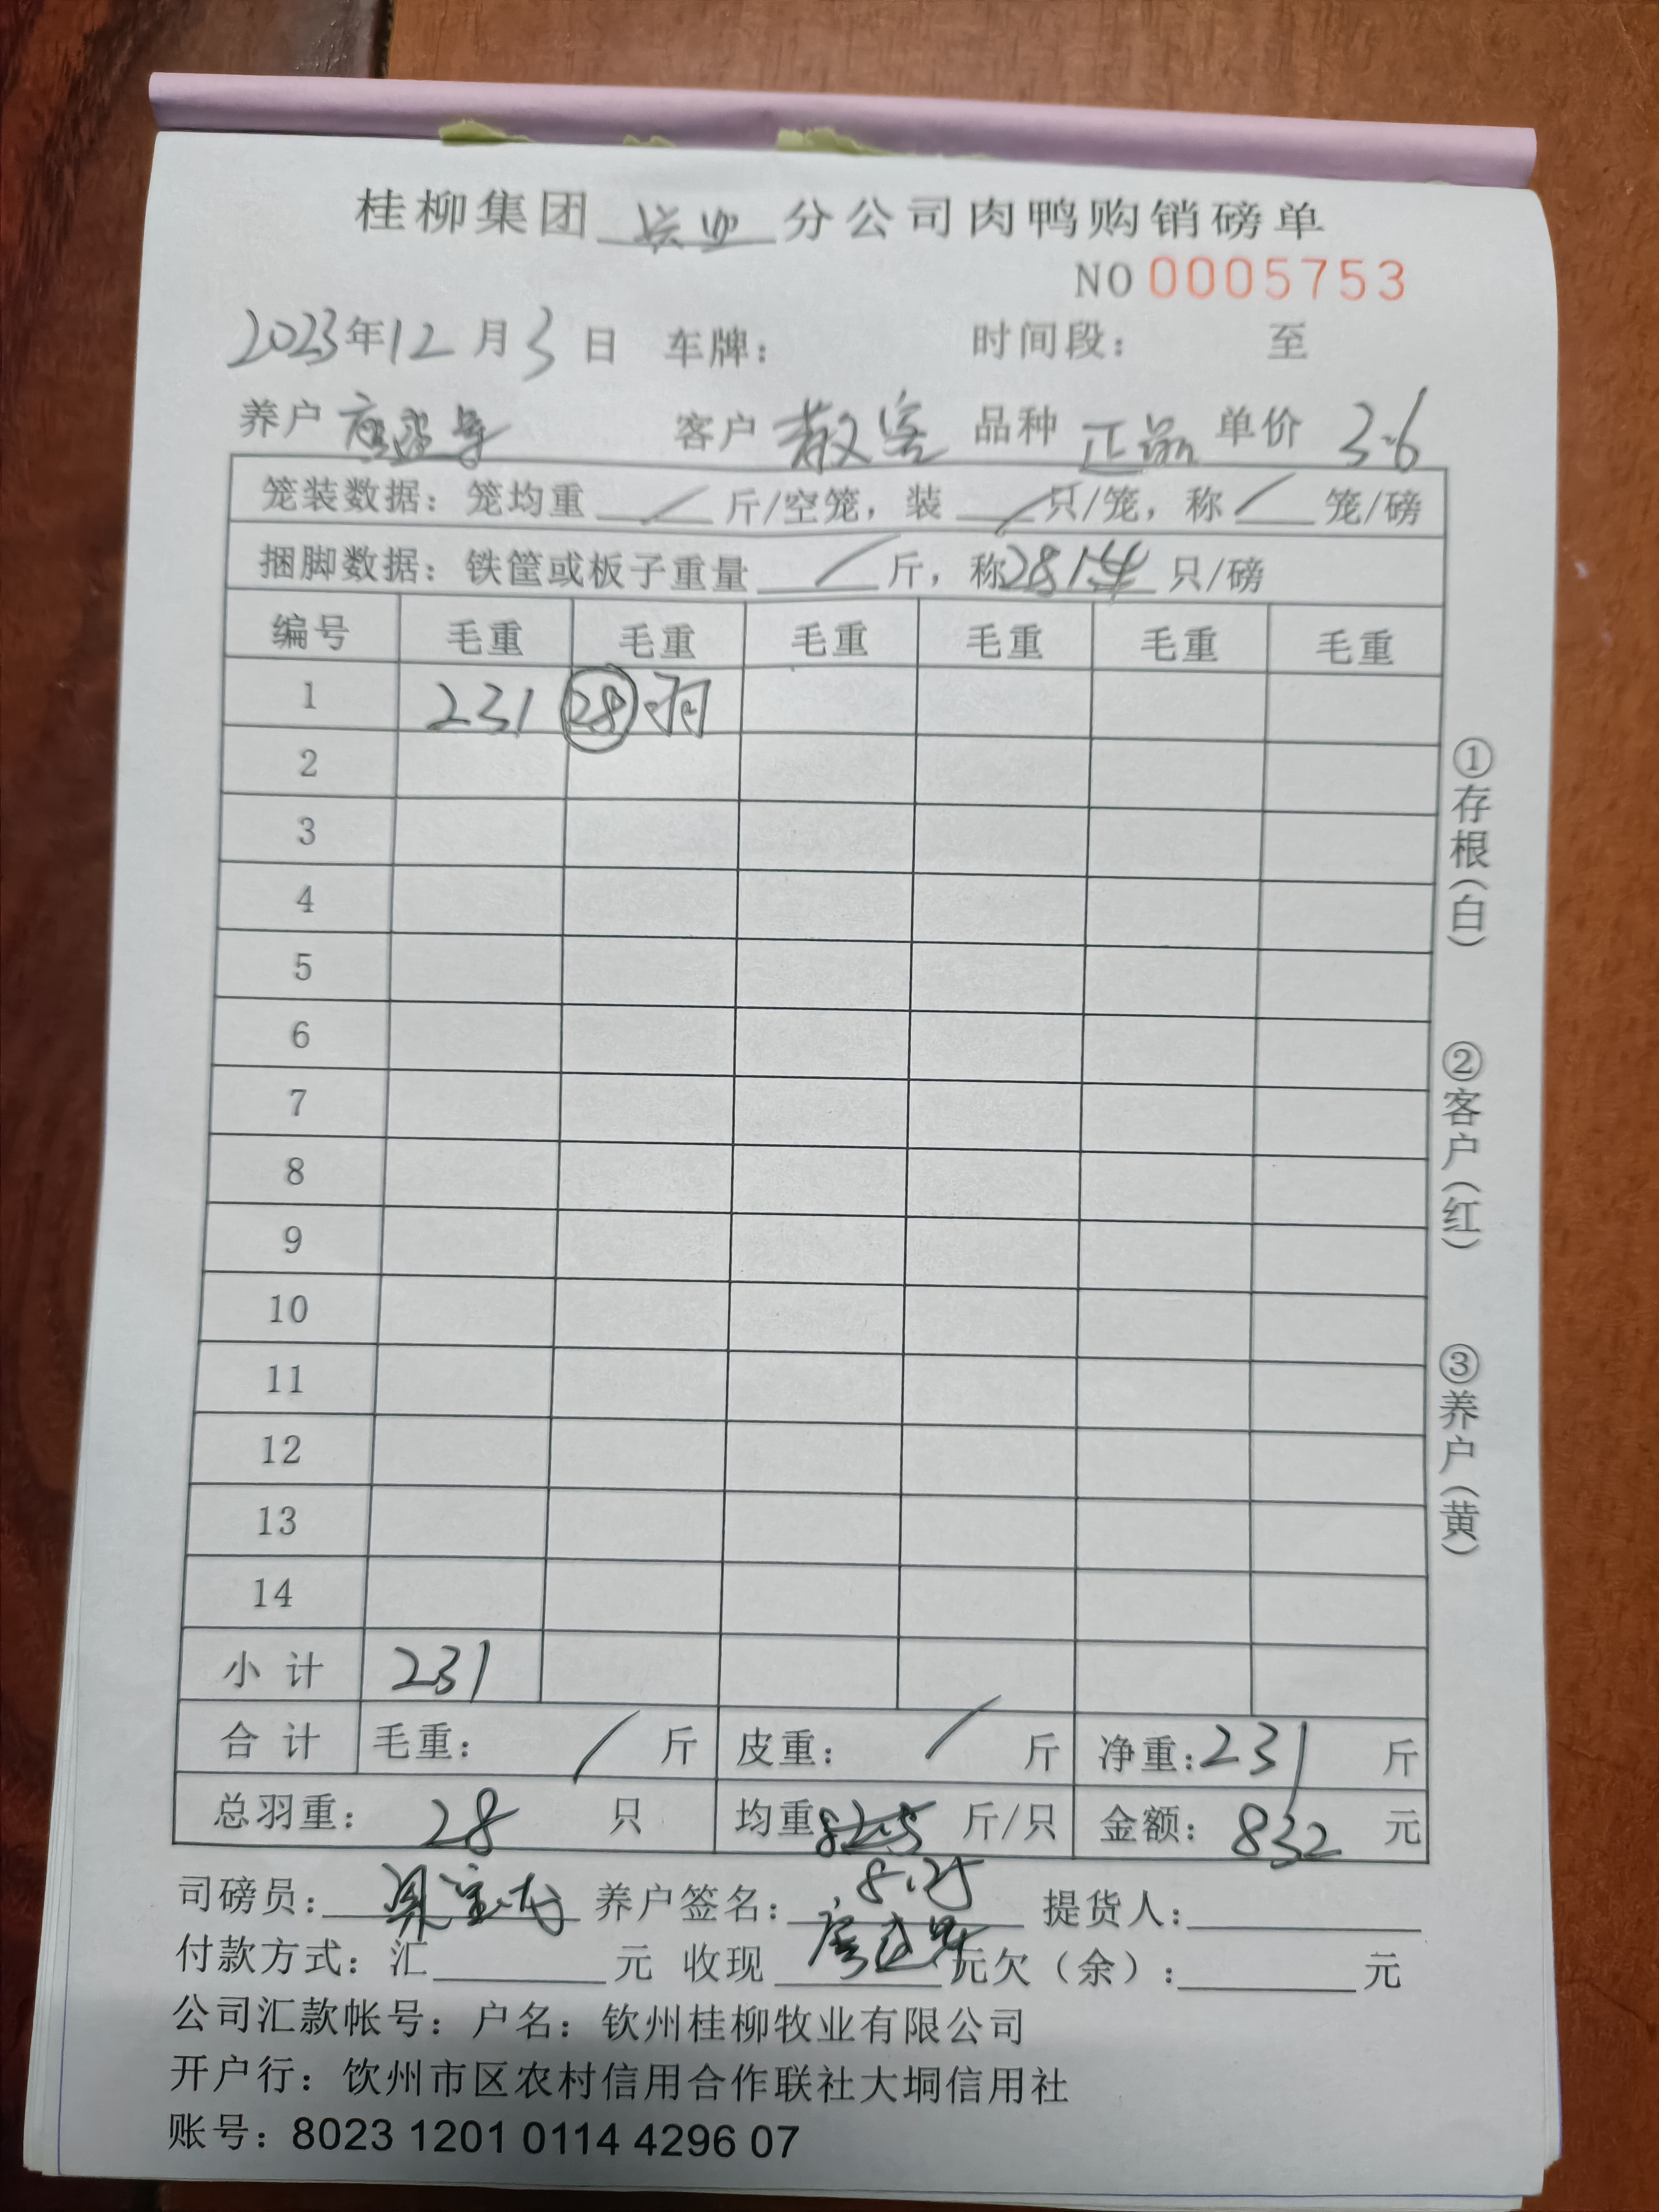 桂柳集团 分公司肉鸭购销磅单
NO 0005753
2023年12月3日 车牌： 时间段： 至
养户 客户 散客 品种 正品 单价 3.6
笼装数据：笼均重 / 斤/空笼，装 / 只/笼，称 / 笼/磅
捆脚数据：铁筐或板子重量 / 斤，称 28 只/磅
编号 毛重 毛重 毛重 毛重 毛重 毛重
1 231 28 羽
2
3
4
5
6
7
8
9
10
11
12
13
14
小计 231
合计 毛重： / 斤 皮重： / 斤 净重：231 斤
总羽重： 28 只 均重 斤/只 金额：832 元
8.25
司磅员： 养户签名： 提货人：
付款方式：汇 元 收现 元欠（余）： 元
公司汇款帐号：户名：钦州桂柳牧业有限公司
开户行：钦州市区农村信用合作联社大垌信用社
账号：8023 1201 0114 4296 07
①存根（白）
②客户（红）
③养户（黄）